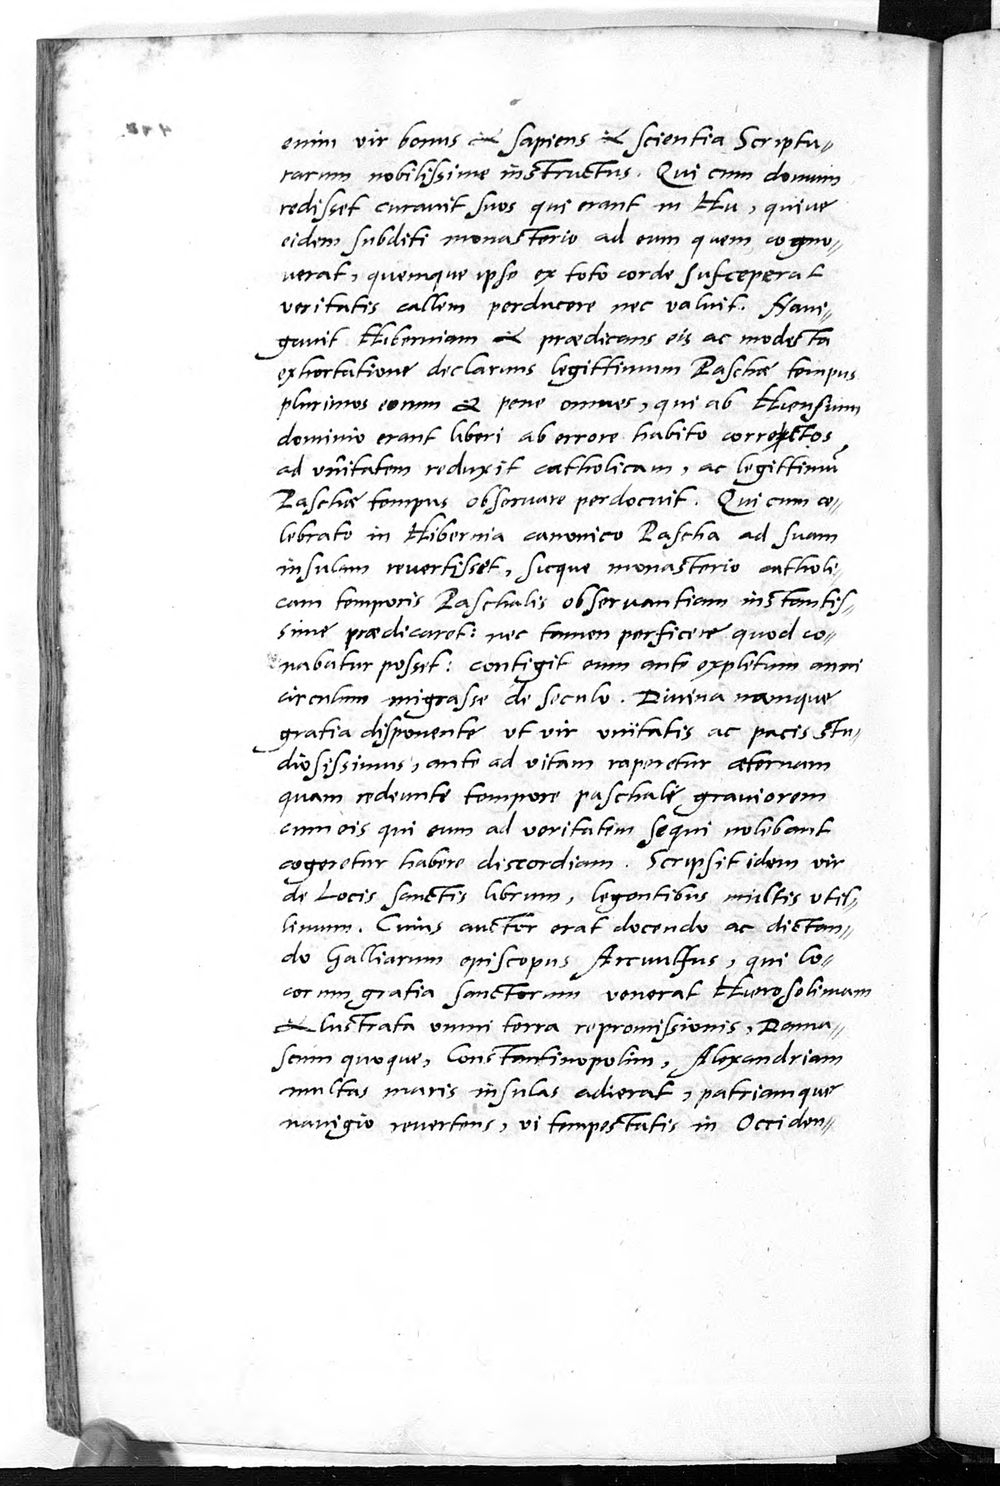 enim vir bonus & sapiens & scientia Scriptu=
rarum nobilissime instructus. Qui cum domum
redisset curavit suos qui erant in Hu, quive
eidem subditi monasterio ad eum quem cogno=
verat, quemque ipse ex toto corde susceperat
veritatis callem perducere nec valuit. Navi=
gavit Hiberniam & prædicans eis ac modesta
exhortatione declarans legittimum Paschæ tempus
plurimos eorum & pene omnes, qui ab Huensium
dominio erant liberi ab errore habito correctos
ad unitatem reduxit catholicam, ac legittimū
Paschæ tempus observare perdocuit. Qui cum ce=
lebrato in Hibernia canonico Pascha ad suam
insulam revertisset, sicque monasterio catholi=
cam temporis Paschalis observantiam instantis=
sime prædicaret: nec tamen perficere quod co=
nabatur posset: contigit eum ante expletum anni
circulum migrasse de seculo. Divina namque
gratia disponente ut vir unitatis ac pacis stu=
diosissimus, ante ad vitam raperetur æternam
quam redeunte tempore paschali graviorem
cum eis qui eum ad veritatem sequi nolebant
cogeretur habere discordiam. Scripsit idem vir
de Locis sanctis librum, legentibus multis util=
limum. Cuius auctor erat docendo ac dictan=
do Galliarum episcopus Arcuulfus, qui lo=
corum gratia sanctorum venerat Hierosolimam
& lustrata omni terra repromissionis, Dama=
scum quoque, Constantinopolim, Alexandriam
multas maris insulas adierat, patriamque
navigio revertens, vi tempestatis in Occiden=